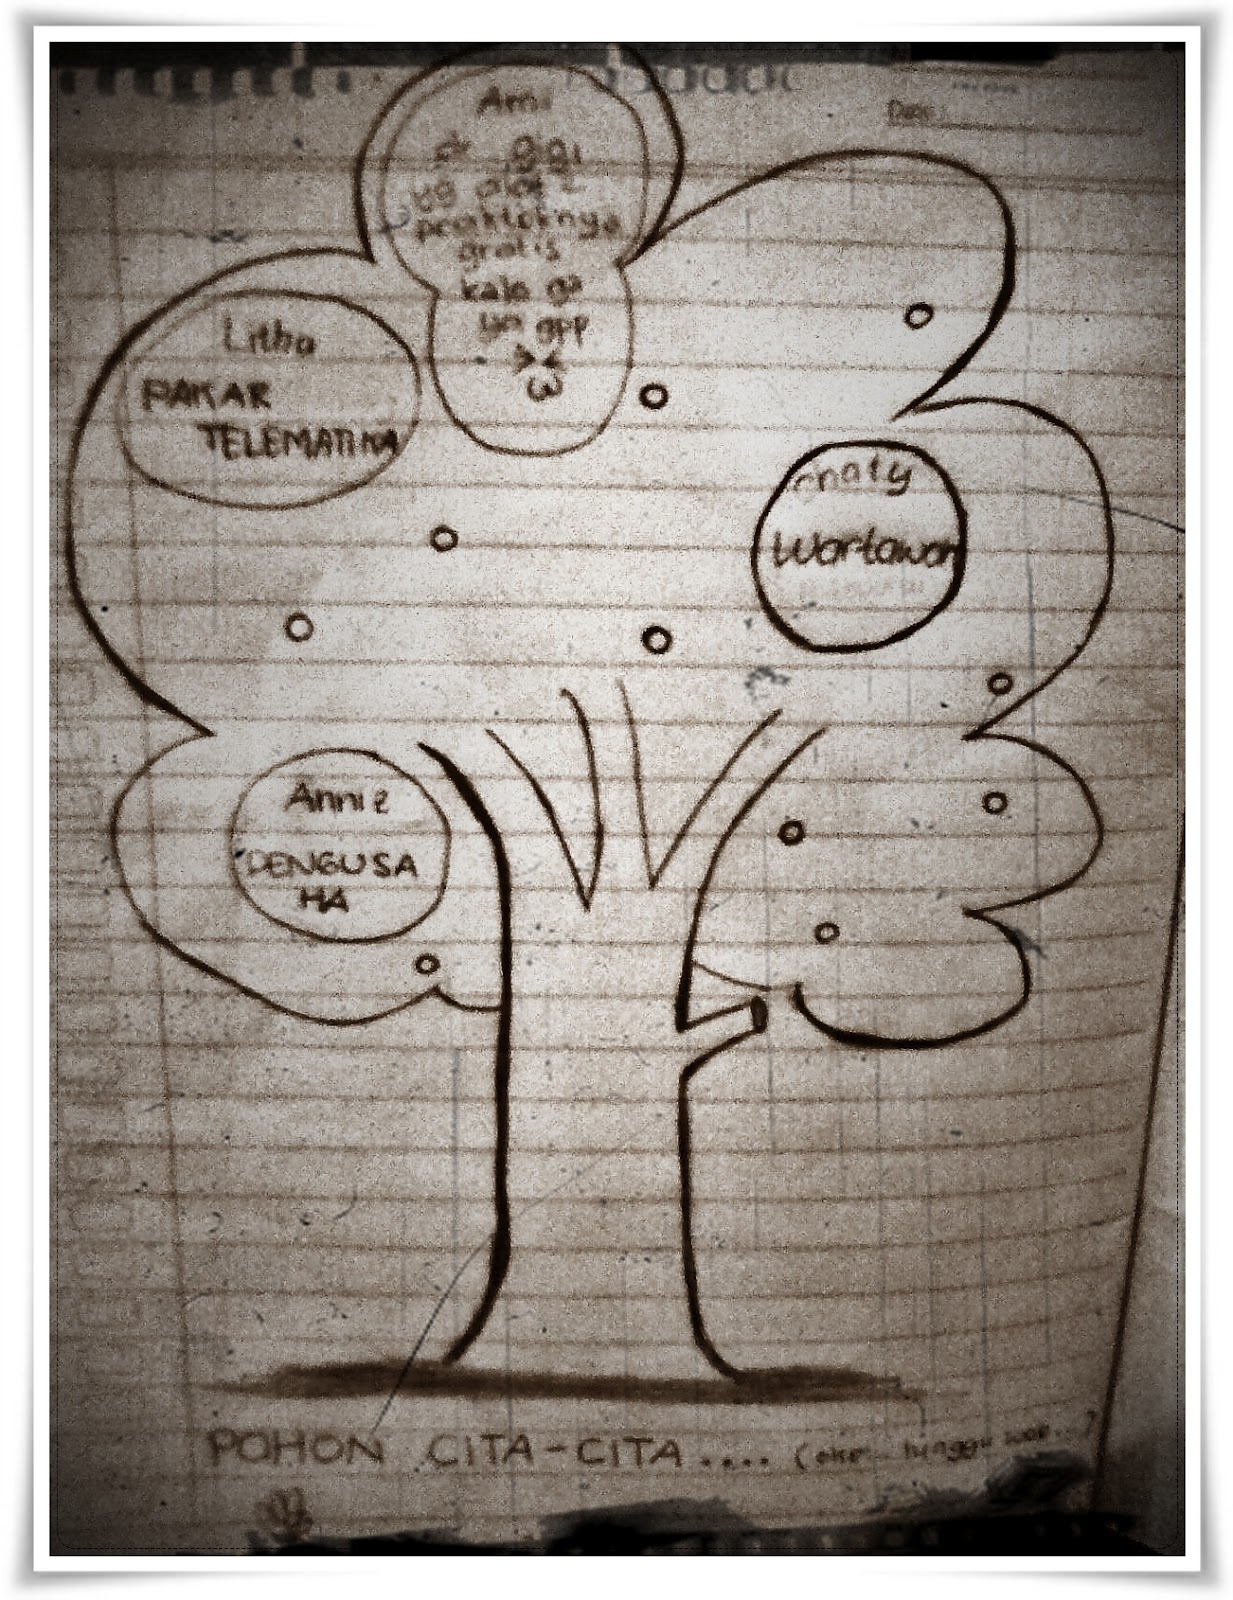 Date:
Ami
dr gigi
yg
prakteknya
gratis
kalo ga
jln gpp
Litha
PAKAR
TELEMATIKA
enaty
Wartawan
Annie
PENGUSA
HA
POHON CITA-CITA .... (oke..